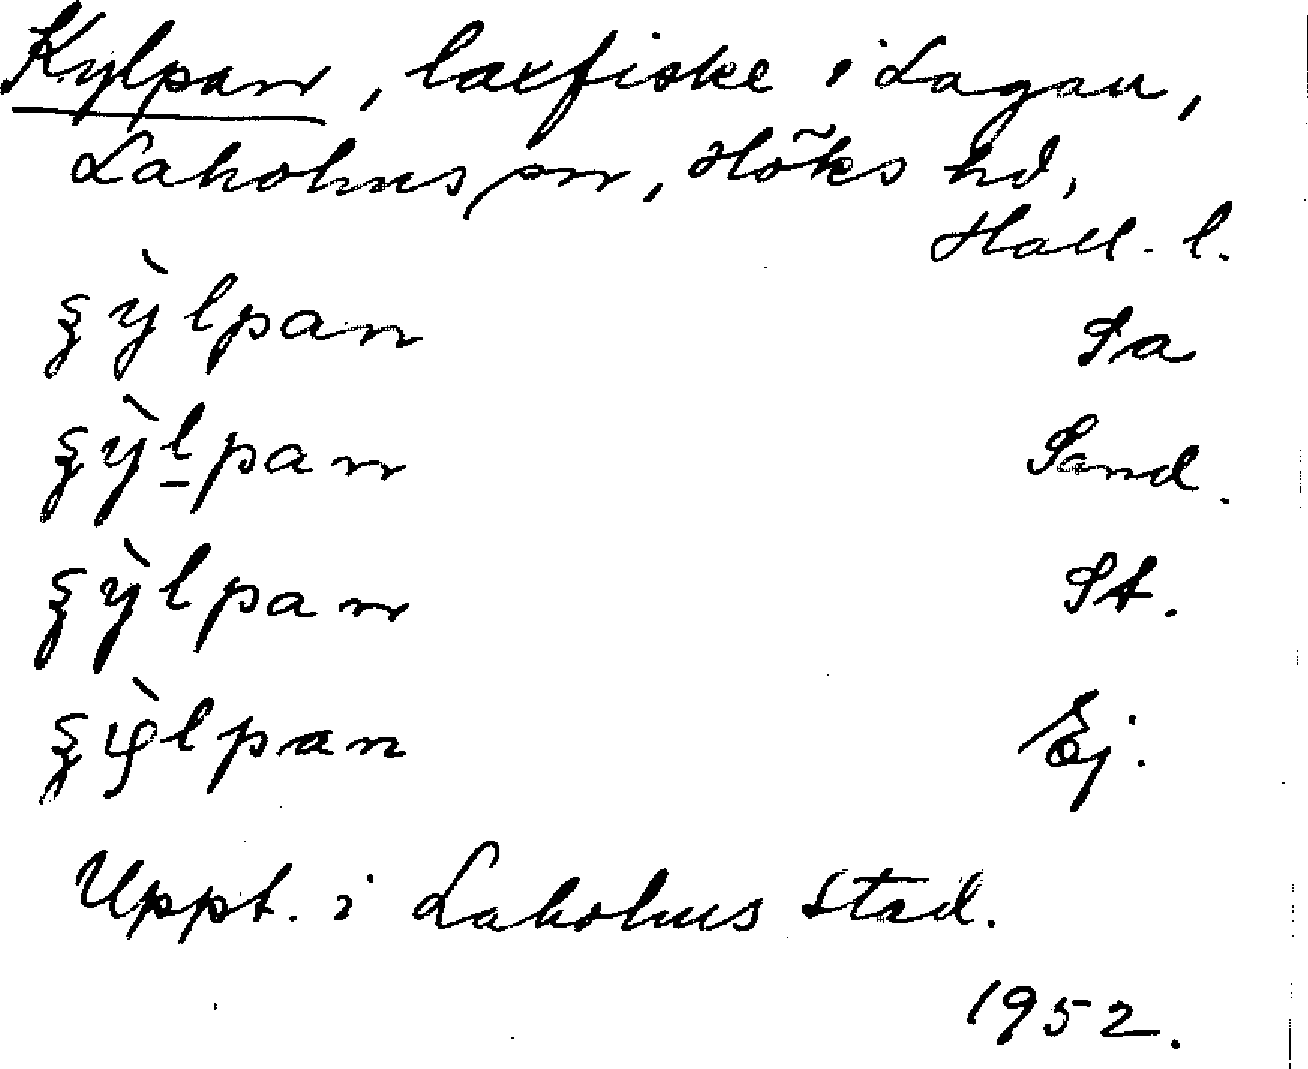 Kylpan, laxfiske i Lagan,
Laholms sn, Höks hd,
Hall. l.
ȿỳlpan Sa
ȿỳlpan Sand.
ȿỳlpan St.
ȿỳlpan Ej.
Uppt. i Laholms stad.
1952.